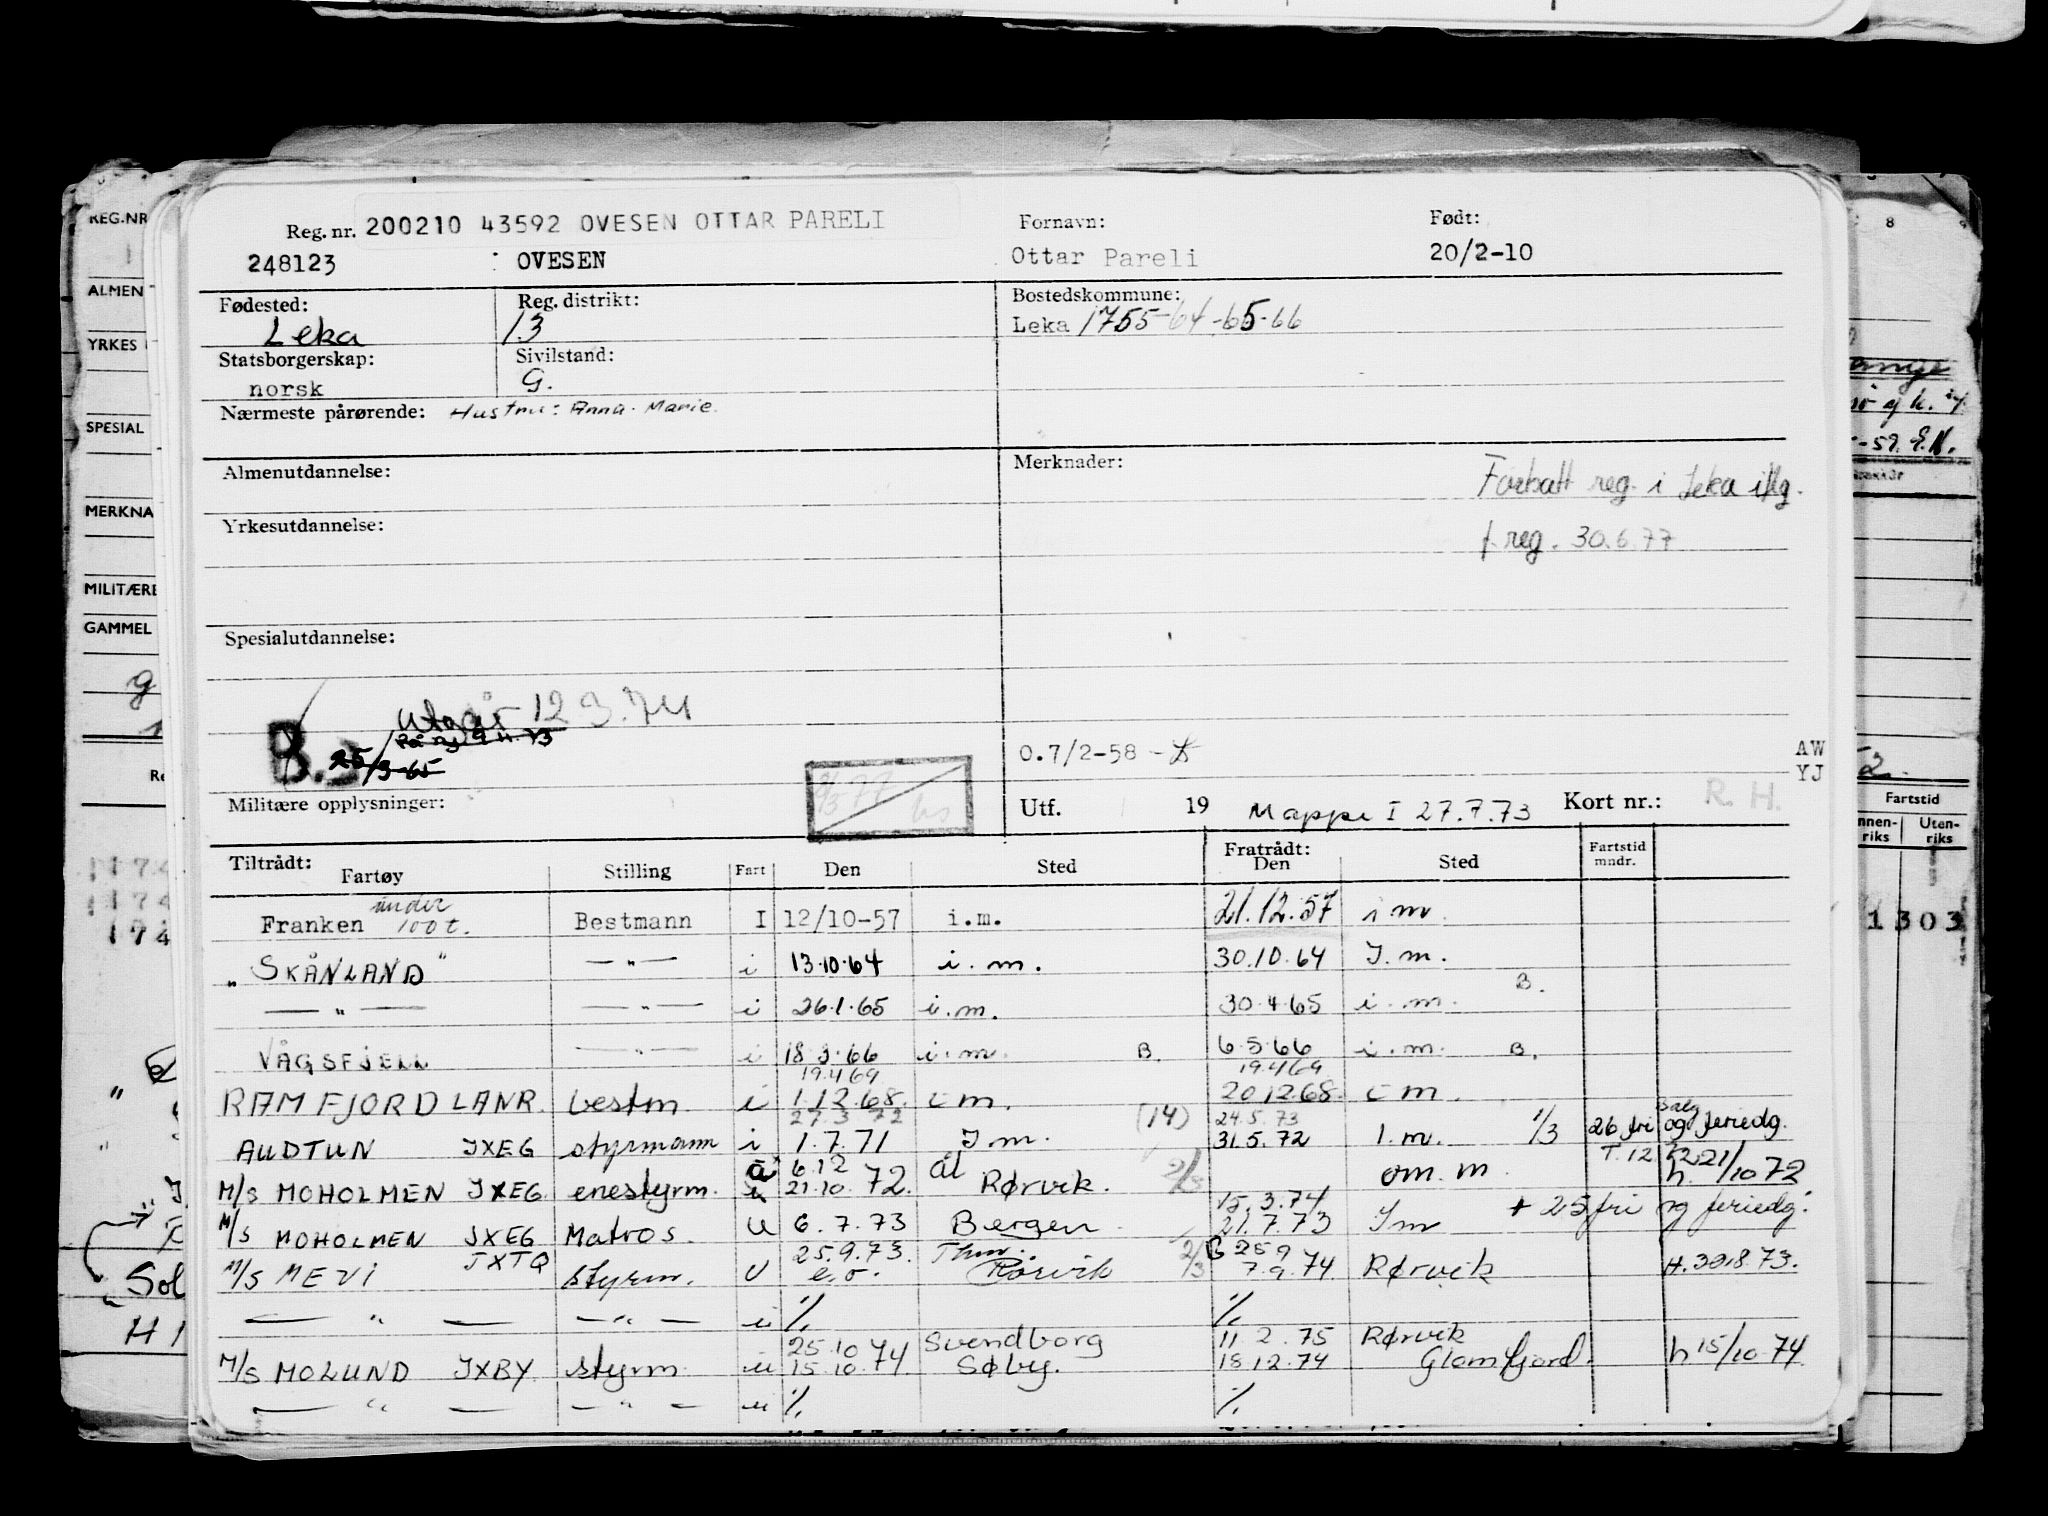 Reg. nr. 200210 43592 OVESEN OTTAR PARELI Fornavn: Født:
248123 OVESEN Ottar Pareli 20/2-10
Fødested: Reg. distrikt: Bostedskommune:
Leka 13 Leka 1755-64-65-66
Statsborgerskap: Sivilstand:
norsk G.
Nærmeste pårørende: Hustru: Anna-Marie.
Almenutdannelse: Merknader:
reg. i Leka
Yrkesutdannelse:
f. reg. 30.6.77
Spesialutdannelse:
Utgår 12 9.74
B. 25/3-65
0.7/2-58 AW
YJ
Militære opplysninger: Utf. 19 Mappe I 27.7.73 Kort nr.: R. H.
Tiltrådt: Fratrådt: Fartstid
Fartøy Stilling Fart Den Sted Den Sted mndr.
under
Franken 100 t. Bestmann I 12/10-57 i.m. 21.12.57 i m.
"SKÅNLAND" — " — i 13.10.64 i.m. 30.10.64 I.m.
B.
— " — — " — i 26.1.65 i.m. 30.4.65 i.m.
VÅGSFJELL — " — i 18.3.66 i.m. B. 6.5.66 i.m. B.
19.4 69 19.4 69
RAMFJORD LANR. bestm. i 1.12.68. i m. 20.12.68. i m.
27.3 72 (14) 24.5.73
AUDTUN JXEG styrmann i 1.7.71 I m. 31.5.72 I.m. 1/3 26 fri og feriedg.
6.12
M/S MOHOLMEN JXEG enestyrm. 21.10.72. Rørvik. om. m. h. 21/10 72
15.3.74 + 25 fri og feriedg.
M/S MOHOLMEN JXEG Matros. U 6.7.73 Bergen 21.7.73 I m
JXTQ 25.9.73. 25 9
M/S MEVI styrm. U e.o. Rørvik 2/3 7.9.74 Rørvik H. 30.8.73.
— " — — " — u %. %.
25.10.74 Svendborg 11 2.75 Rørvik
M/S MOLUND JXBY styrm. u 15.10.74 Søby. 18.12.74 Glomfjord. h 15/10 74
— " — — " — u %. %.
REG.NR
ALMEN
YRKES
SPESIAL
MERKNA
MILITÆRE
GAMMEL
g
Sol
H
8
-59. E.N.
Fartstid
nnen- Uten-
riks riks
1303